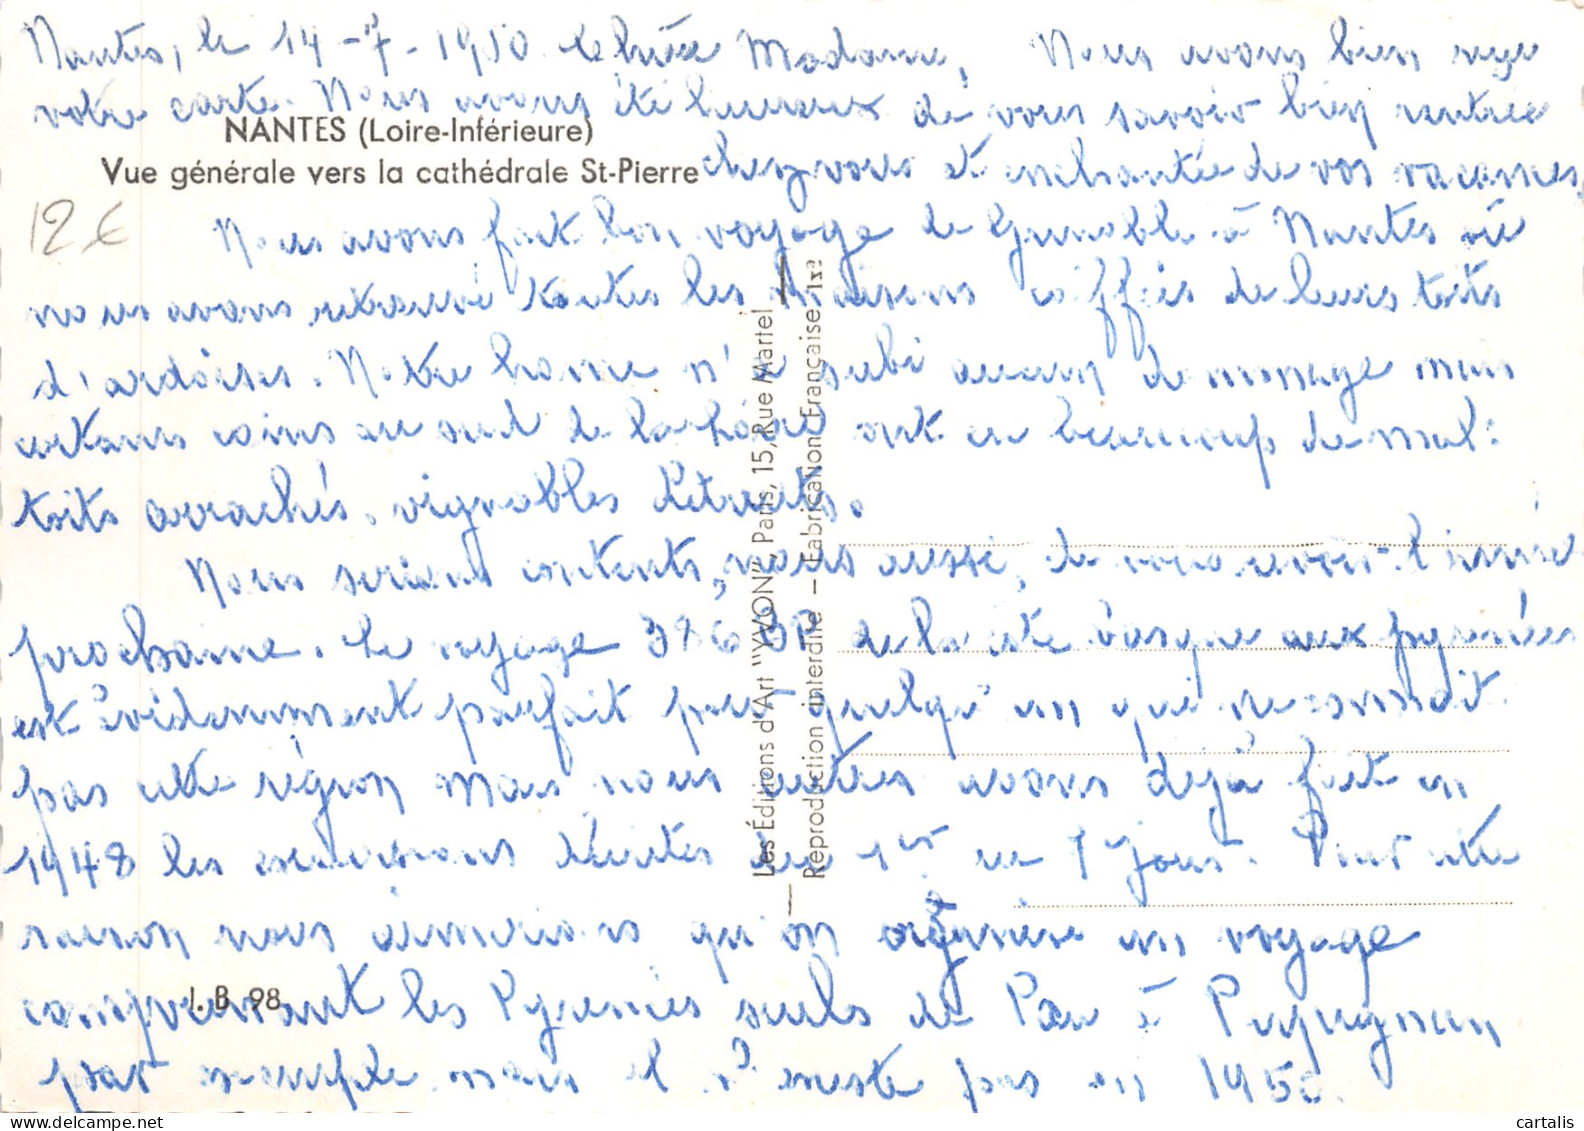 Nantes, le 14-7-1950. Chère Madame, Nous avons bien reçu
votre carte. Nous avons été heureux de vous savoir bien rentrée
NANTES (Loire-Inférieure)
Vue générale vers la cathédrale St-Pierre
chez vous et enchantée de vos vacances.
12€
Nous avons fait bon voyage de Grenoble à Nantes où
nous avons retrouvé toutes les maisons coiffées de leurs toits
d'ardoises. Notre home n'a subi aucun dommage mais
certains coins au sud de la Loire ont eu beaucoup de mal :
toits arrachés, vignobles détruits.
Nous serions contents, nous aussi, de vous revoir l'année
prochaine. Le voyage de la côte basque aux pyrénées
est évidemment parfait pour quelqu'un qui ne connait
pas cette région mais nous autres avons déjà fait en
1948 les excursions décrites du 1er au jour. Pour cette
raison nous aimerions qu'on organise un voyage
comprenant les Pyrénées seules de Pau à Perpignan
par exemple mais il n'existe pas en 1950.
Les Éditions d'Art "YVON", Paris, 15, Rue Martel
Reproduction interdite — Fabrication Française
I. B. 98
cartalis